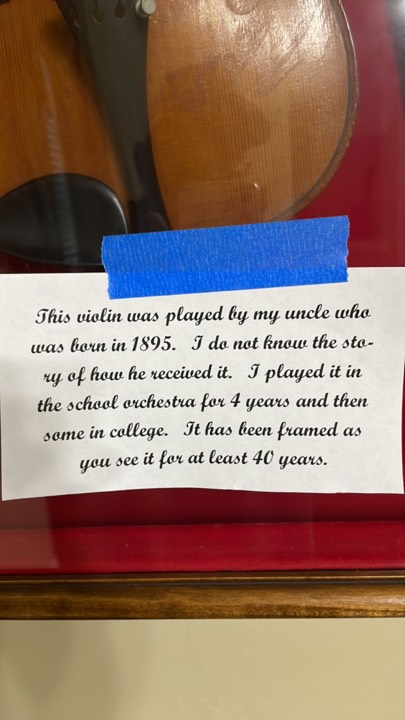 This violin was played by my uncle who
was born in 1895. I do not know the sto-
ry of how he received it. I played it in
the school orchestra for 4 years and then
some in college. It has been framed as
you see it for at least 40 years.